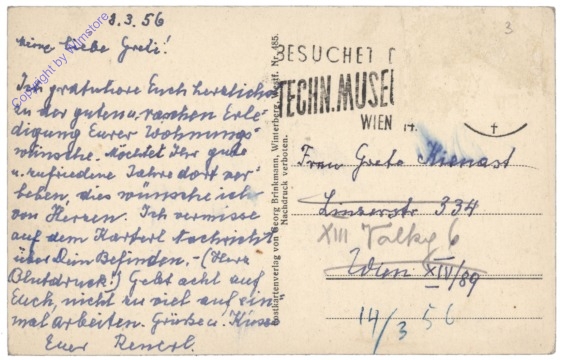 8.3.56
Meine liebe Greti!
Ich gratuliere Euch herzlichst
zu der guten u. raschen Erle-
digung Eurer Wohnungs-
wünsche. Möchtet Ihr gute
u. zufriedene Jahre dort ver-
leben, dies wünsche ich
von Herzen. Ich vermisse
auf dem Karterl Nachricht
über Dein Befinden. - (Herz
Blutdruck!) Gebt acht auf
Euch, nicht zu viel auf ein-
mal arbeiten. Grüße u. Küsse
Euer
Copyright by Wimstore
Postkartenverlag von Georg Brinkmann, Winterberg, Westf. Nr. 485.
Nachdruck verboten.
3
BESUCHET D
TECHN. MUSEU
WIEN
14.
Frau Greta Kienast
Linzerstr 334
XIII Valky 6
Wien XIV/89
14/3 56